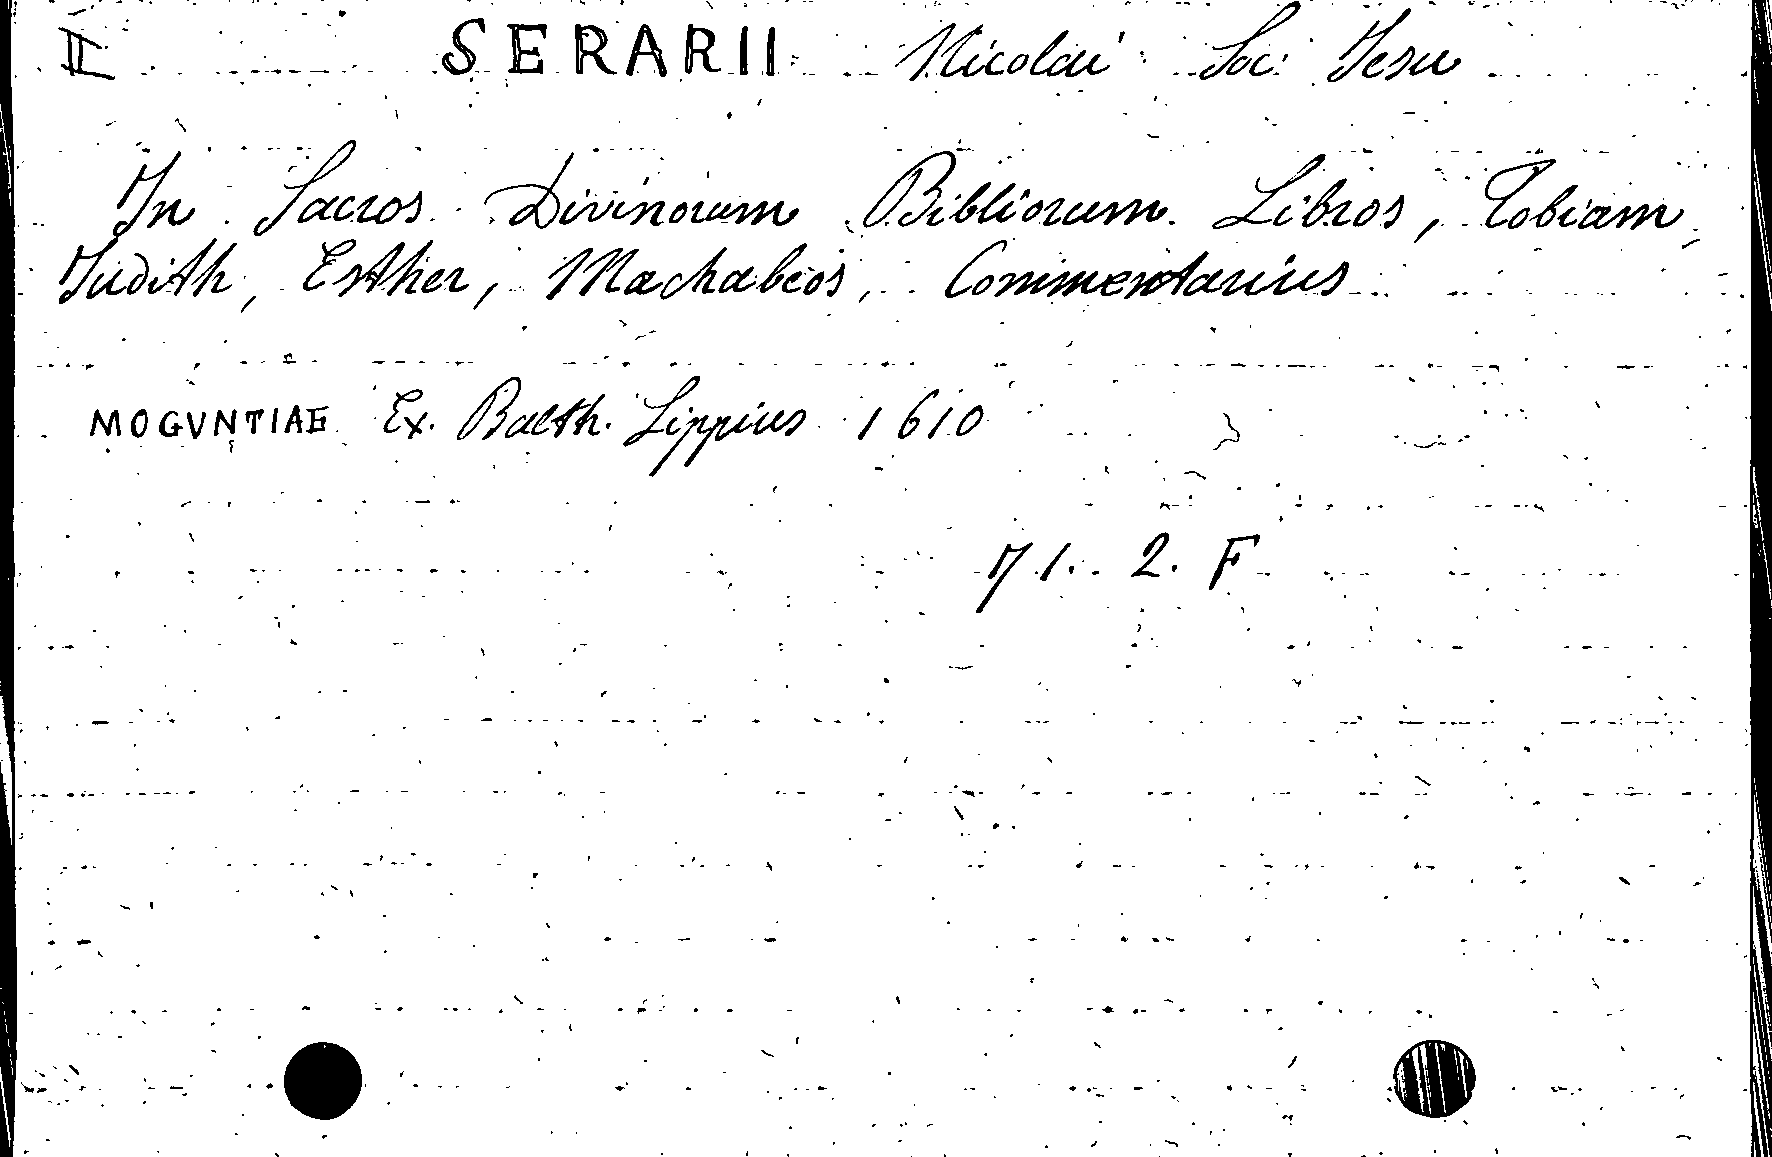 II SERARII Nicolai Soc: Jesu
In Sacros Divinorum Bibliorum Libros, Tobiam,
Judith, Esther, Machabeos, Commentarius
MOGVNTIAE Ex. Balth. Lippius 1610
71. 2. F